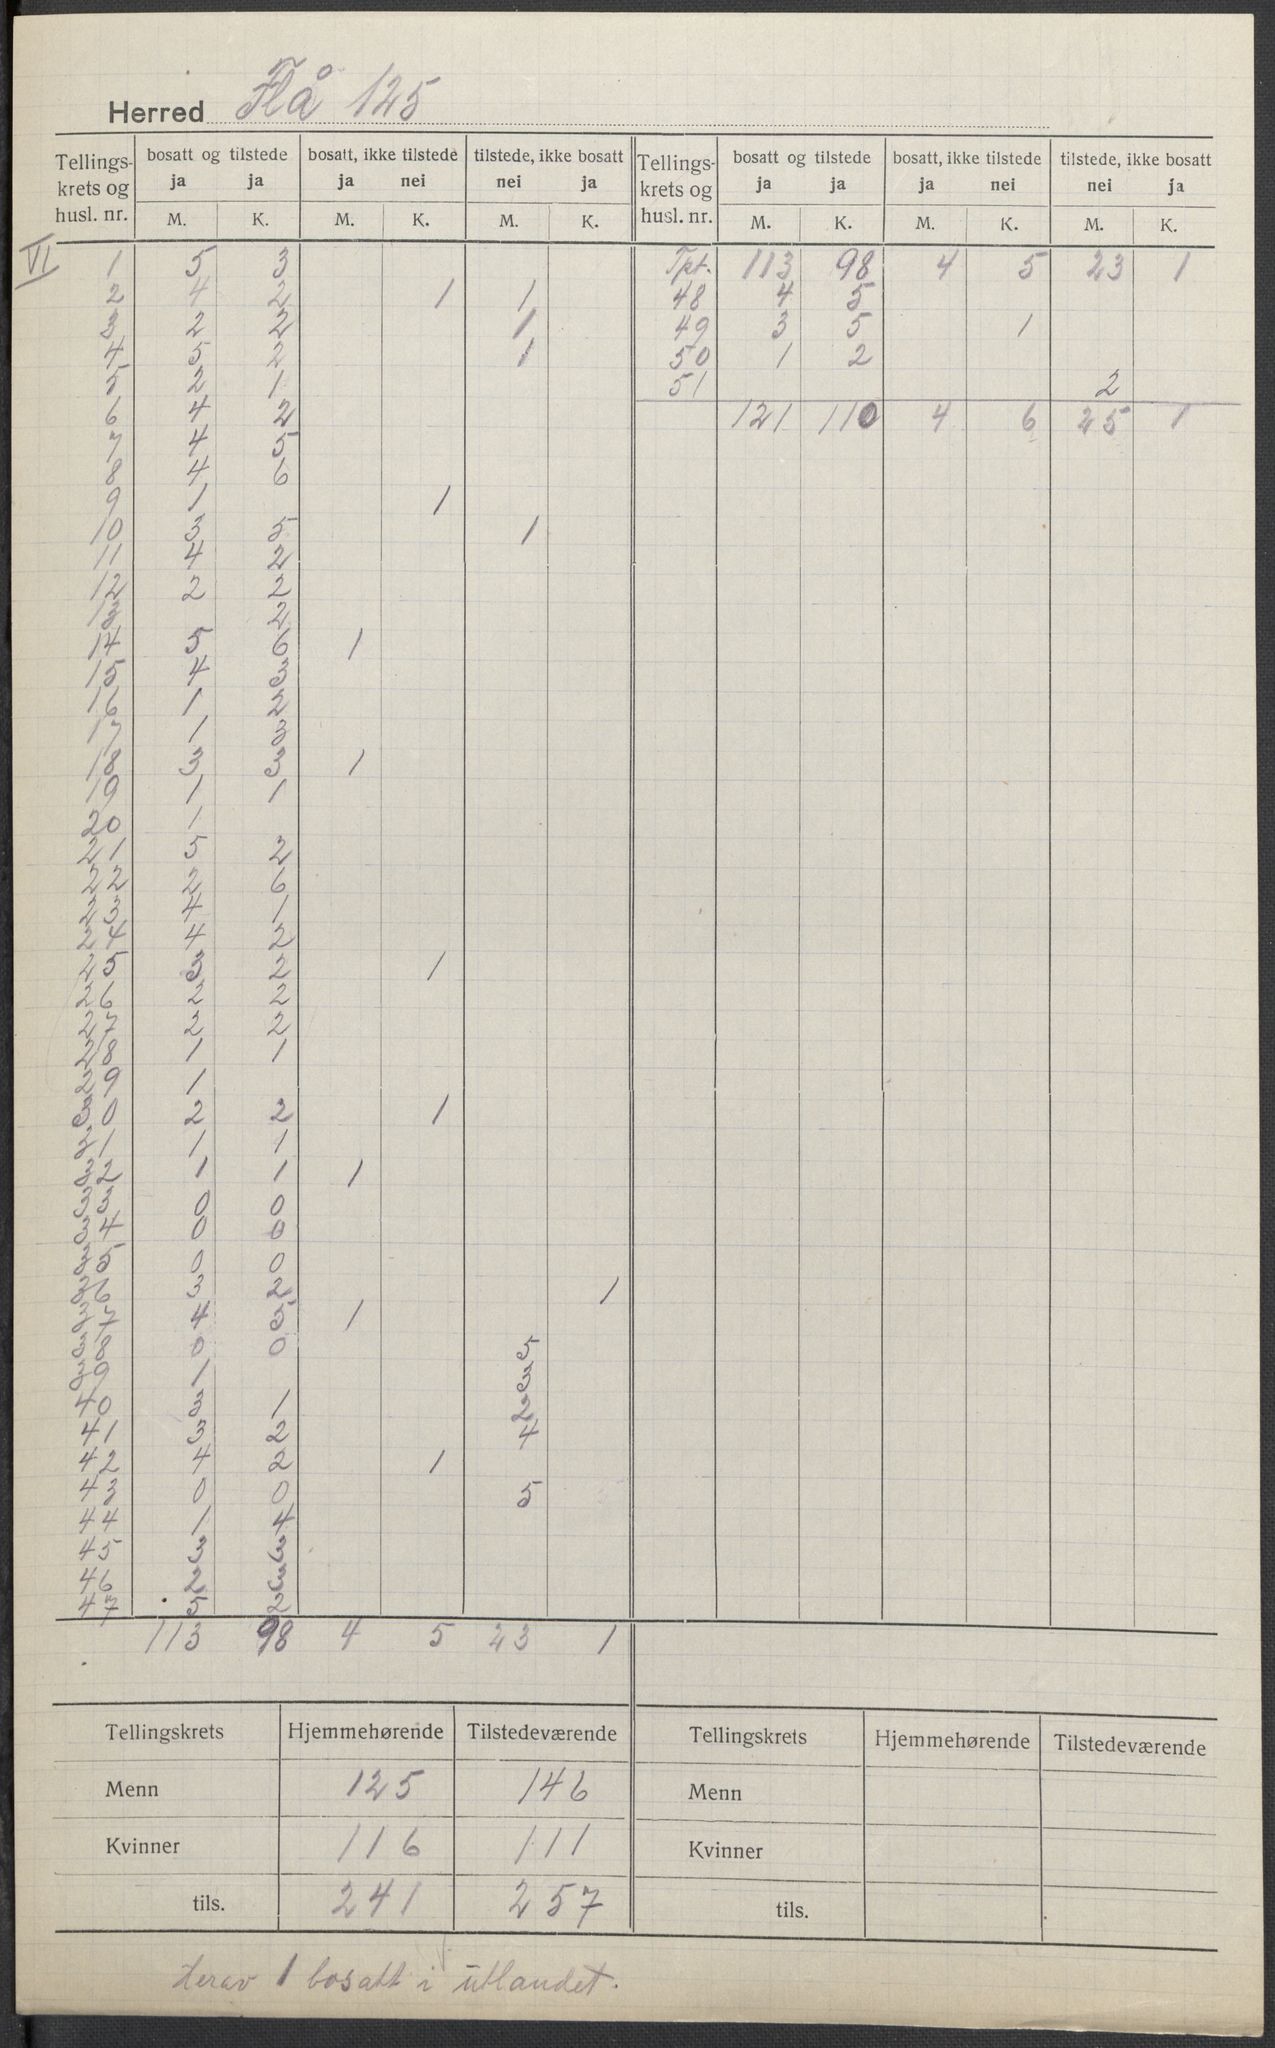 Herred Flå 125
Tellings- krets og husl. nr. | bosatt og tilstede ja ja | bosatt, ikke tilstede ja nei | tilstede, ikke bosatt nei ja | Tellings- krets og husl. nr. | bosatt og tilstede ja ja | bosatt, ikke tilstede ja nei | tilstede, ikke bosatt nei ja
M. K. M. K. M. K. M. K. M. K. M. K.
VI 1 5 3
2 4 2 1 1
3 2 2 1
4 5 2 1
5 2 1
6 4 2
7 4 5
8 4 6
9 1 1
10 3 5 1
11 4 2
12 2 2
13 2
14 5 6 1
15 4 3
16 1 2
17 1 3
18 3 3 1
19 1 1
20 1
21 5 2
22 2 6
23 4 1
24 4 2
25 3 2 1
26 2 2
27 2 2
28 1 1
29 1
30 2 2 1
31 1 1
32 1 1 1
33 0 0
34 0 0
35 0 0
36 3 2 1
37 4 3 1
38 0 0 5
39 1 3
40 3 1 2
41 3 2 4
42 4 2 1
43 0 0 5
44 1 4
45 3 3
46 2 3
47 5 2
113 98 4 5 23 1
Tpt. 113 98 4 5 23 1
48 4 5
49 3 5 1
50 1 2
51 2
121 110 4 6 25 1
Tellingskrets Hjemmehørende Tilstedeværende
Menn 125 146
Kvinner 116 111
tils. 241 257
Tellingskrets Hjemmehørende Tilstedeværende
Menn
Kvinner
tils.
Herav 1 bosatt i utlandet.